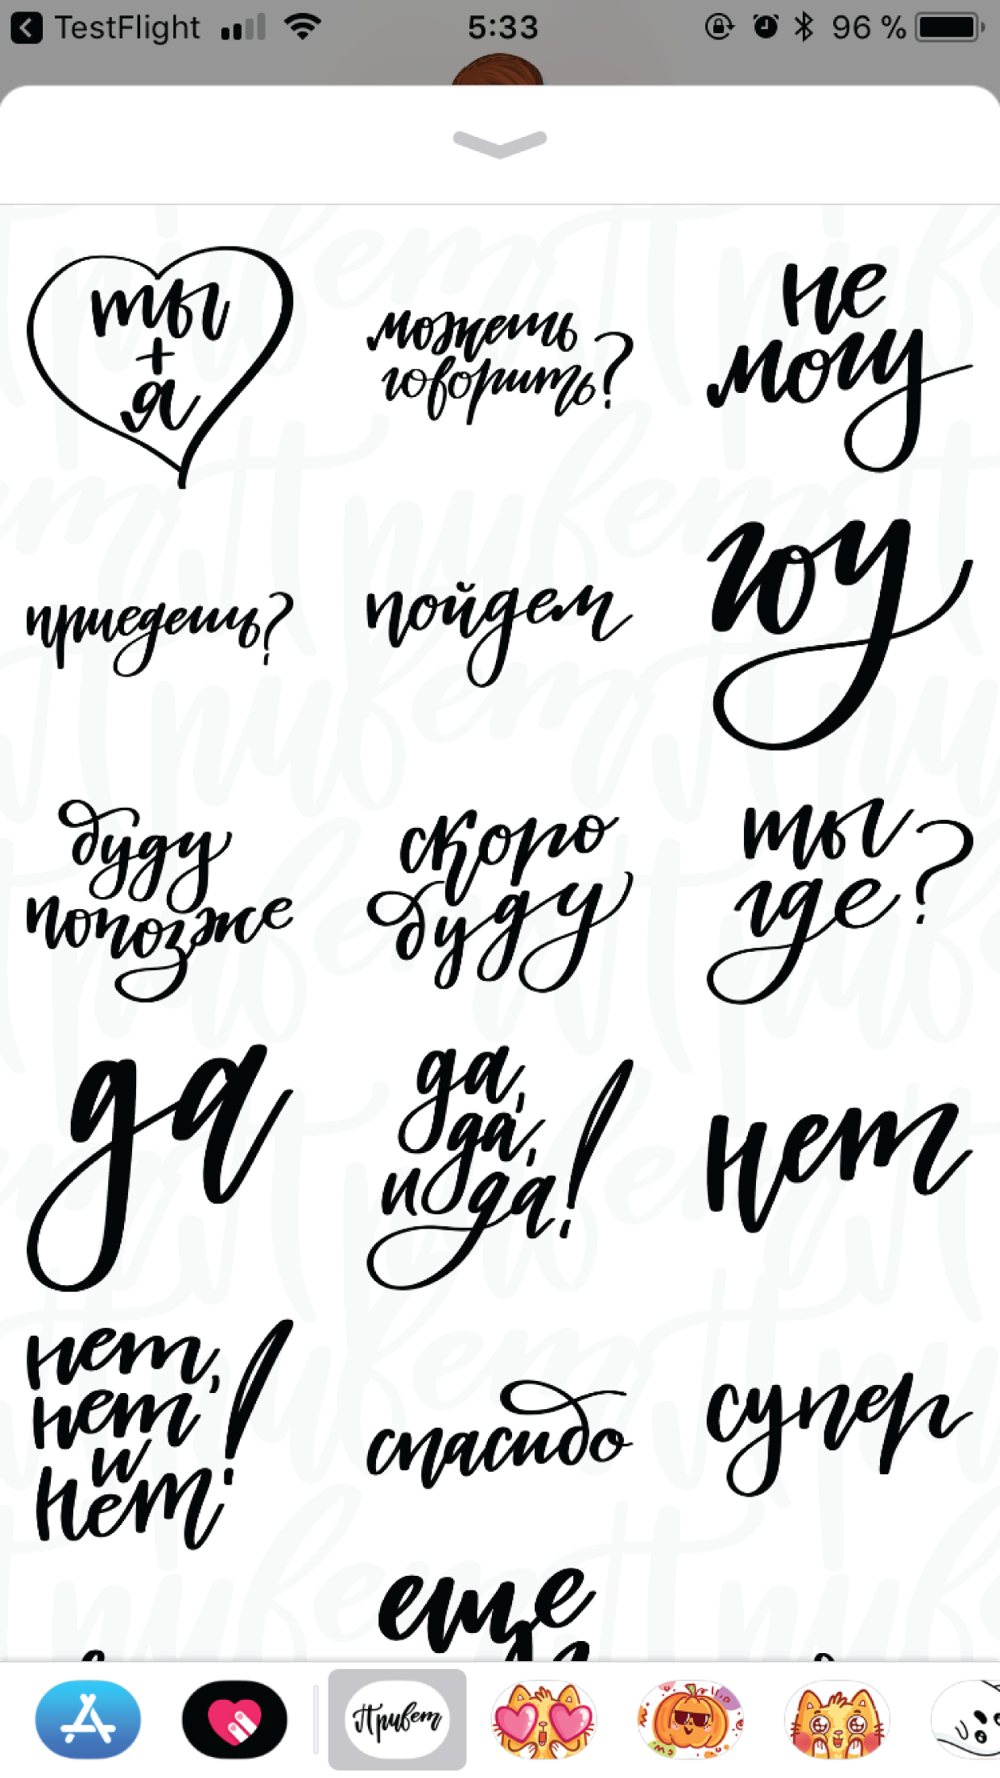 TestFlight 5:33 96 %
ты
+
я
можешь
говорить?
не
могу
приедешь?
пойдем
гоу
буду
попозже
скоро
буду
ты
где?
да
да,
да,
и да!
нет
нет,
нет
и
нет!
спасибо
супер
еще
Привет